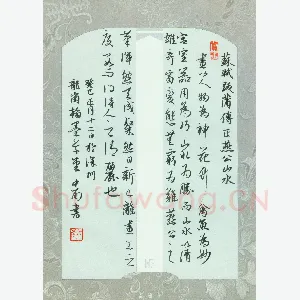 蘇軾跋蒲傳正燕公山水
畫以人物為神花竹禽魚為妙
宮室器用為巧山水為勝而山水以清
雄奇富變態無窮為難燕公之
筆渾然天成粲然日新已離畫工之
度數而得詩人之清麗也
癸巳正月十二日於深圳
龍崗翰墨草堂書